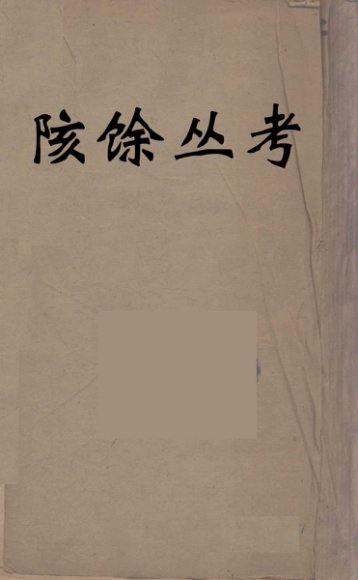 陔馀丛考